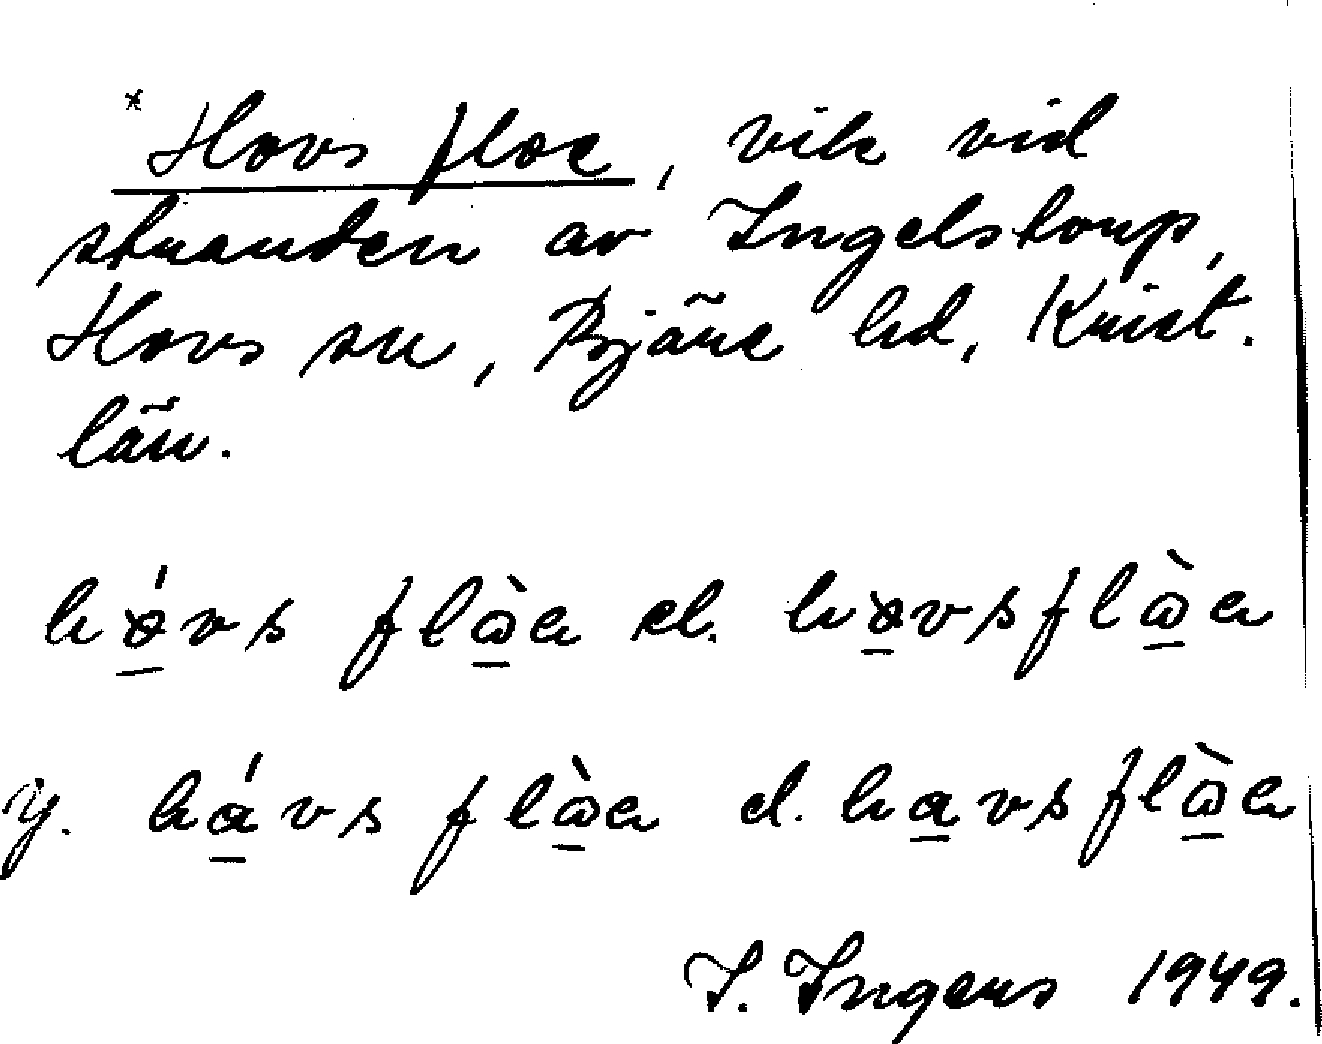 * Hovs floe, vik vid
stranden av Ingelstorp,
Hovs sn, Bjäre hd, Krist.
län.
hǿvs flὼa el. høvsflὼa
y. hávs flὼa el. havsflὼa
I. Ingers 1949.